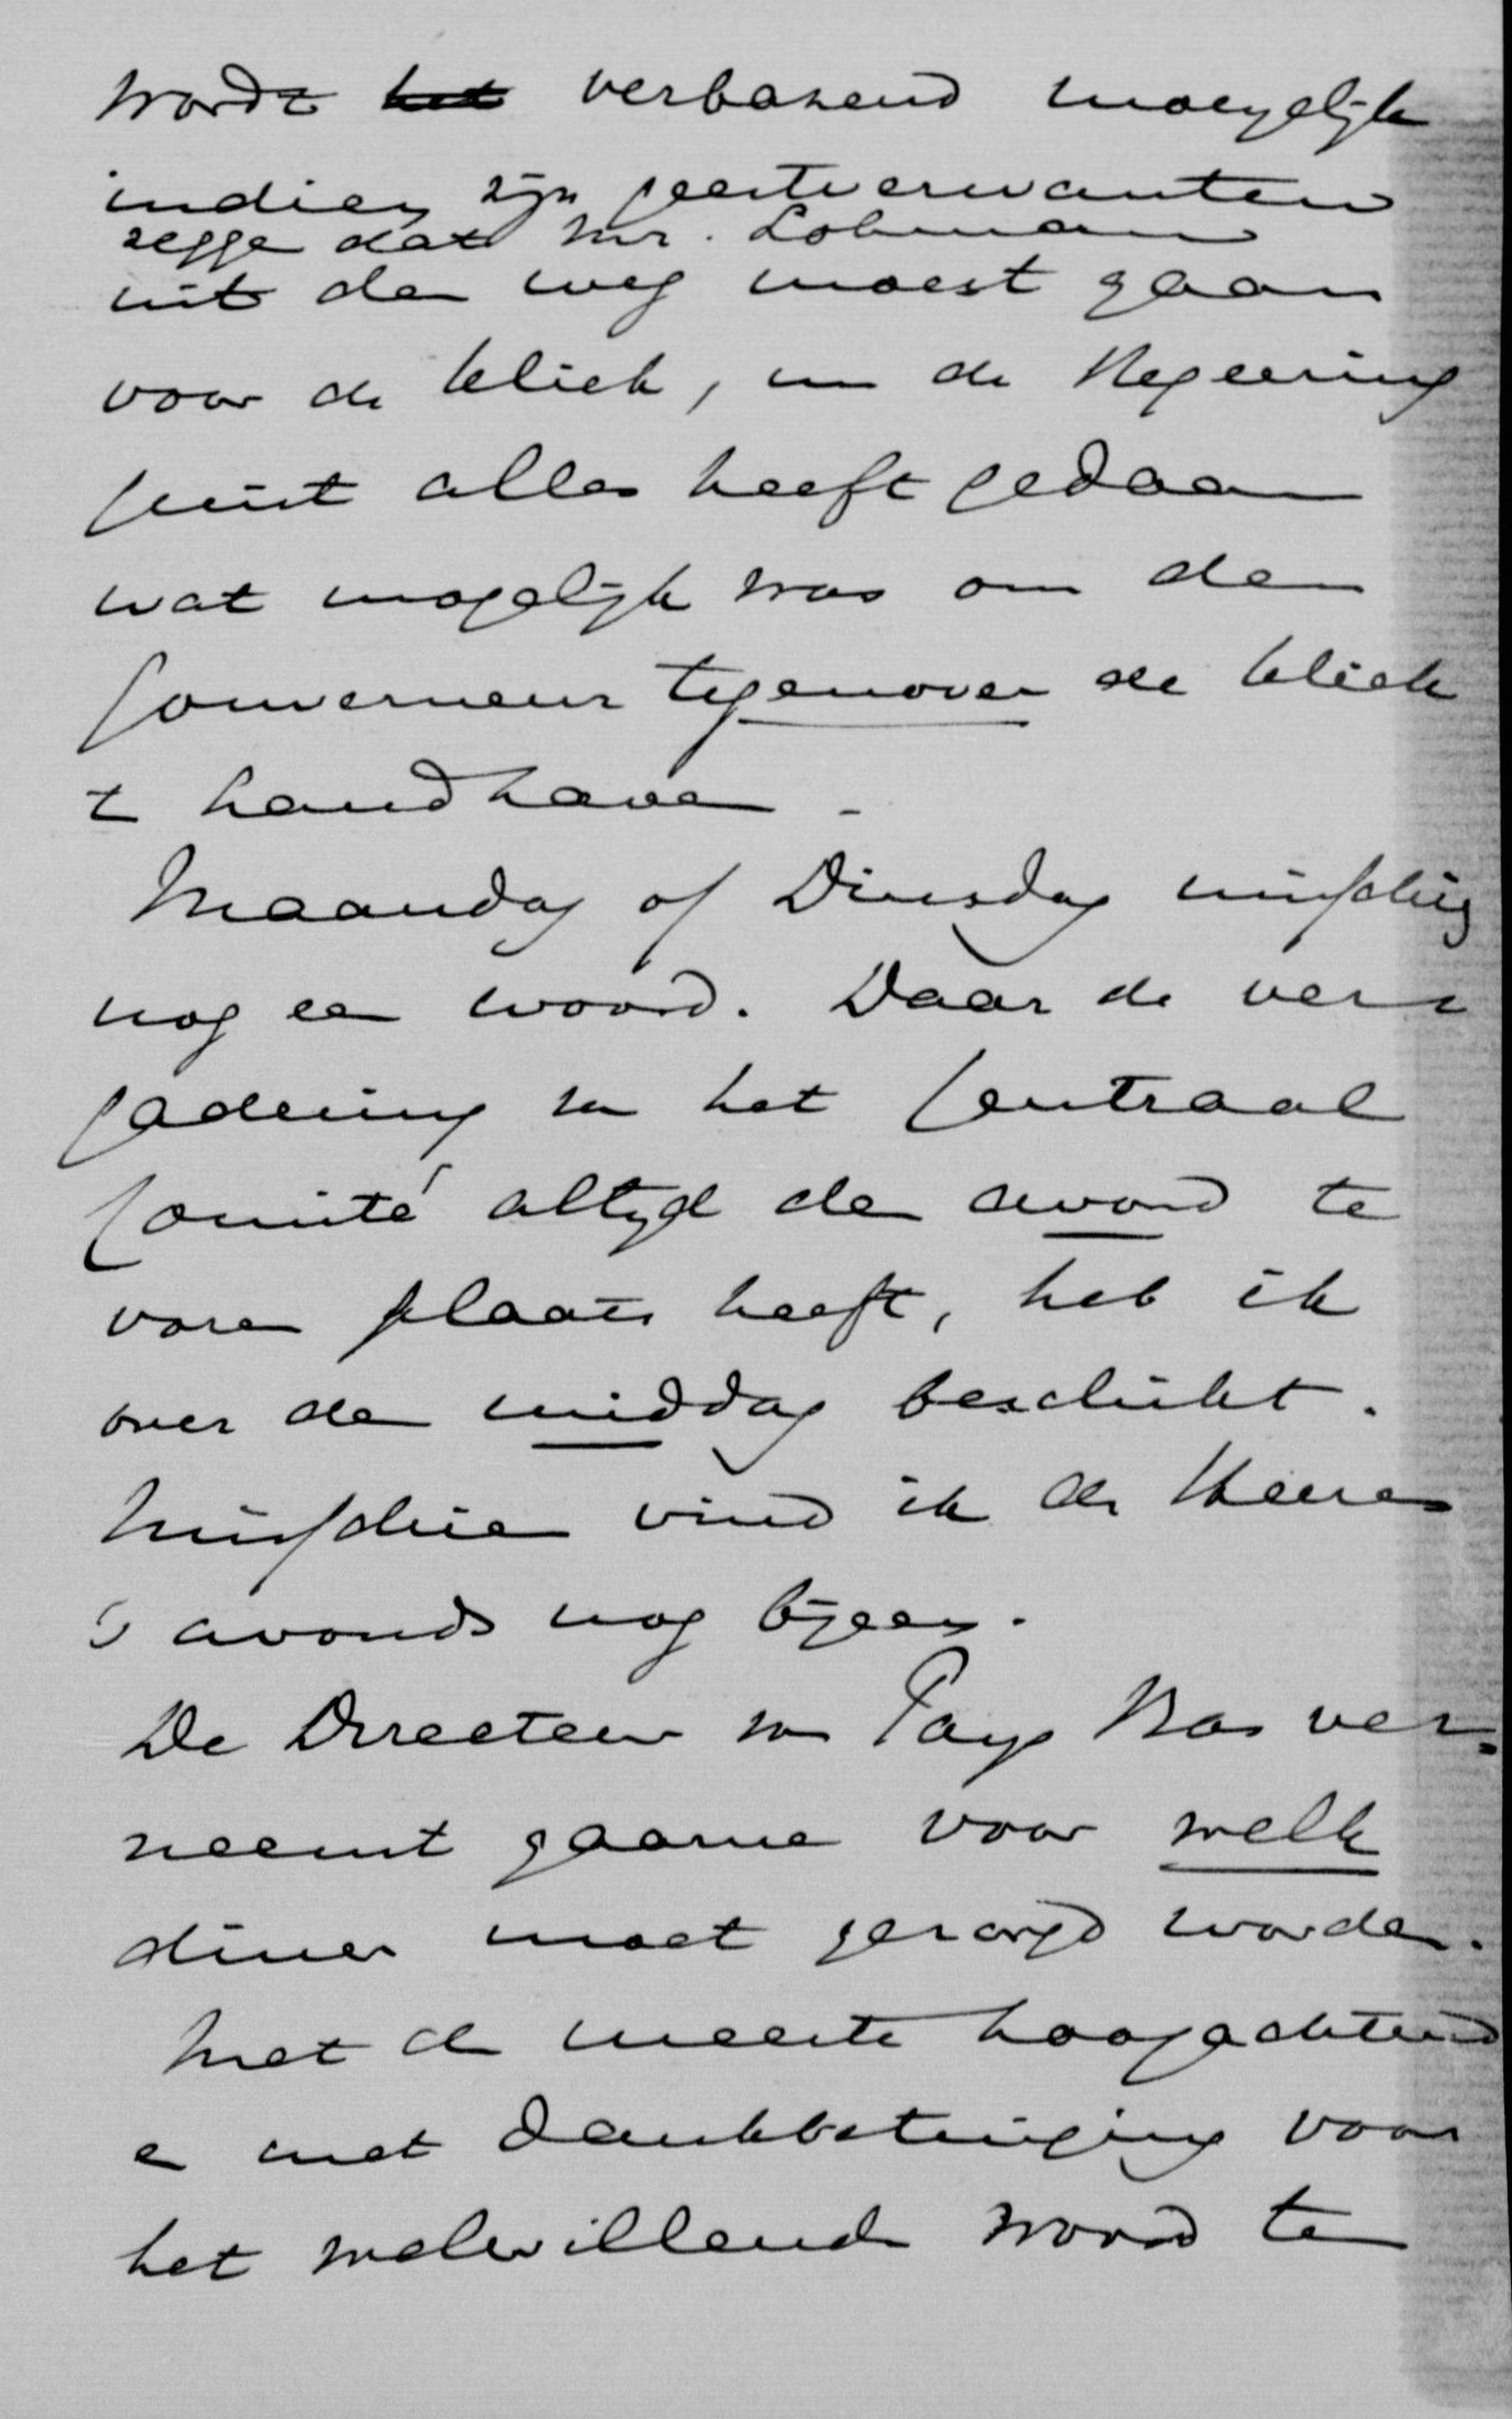 wordt het verbazend moeyelijk
indien zijn geestverwanten
zegge dat Mr. Lohman
uit den weg moest gaan
voor de kliek, en de Regeering
juist alles heeft gedaan
wat mogelijk was om den
Gouverneur tegenover de kliek
te handhaven.
Maandag of Dinsdag misschien
nog een woord. Daar de ver
gadering van het Centraal
Comité altyd den avond te
voren plaats heeft, heb ik
over den middag beschikt.
Misschien vind ik de Heeren
's avonds nog bijeen.
De Directeur van Pays Bas ver-
neemt gaarne voor welk
diner moet gezorgd worden.
Met de meeste hoogachtend
en met dankbetuiging voor
het welwillende woord ten